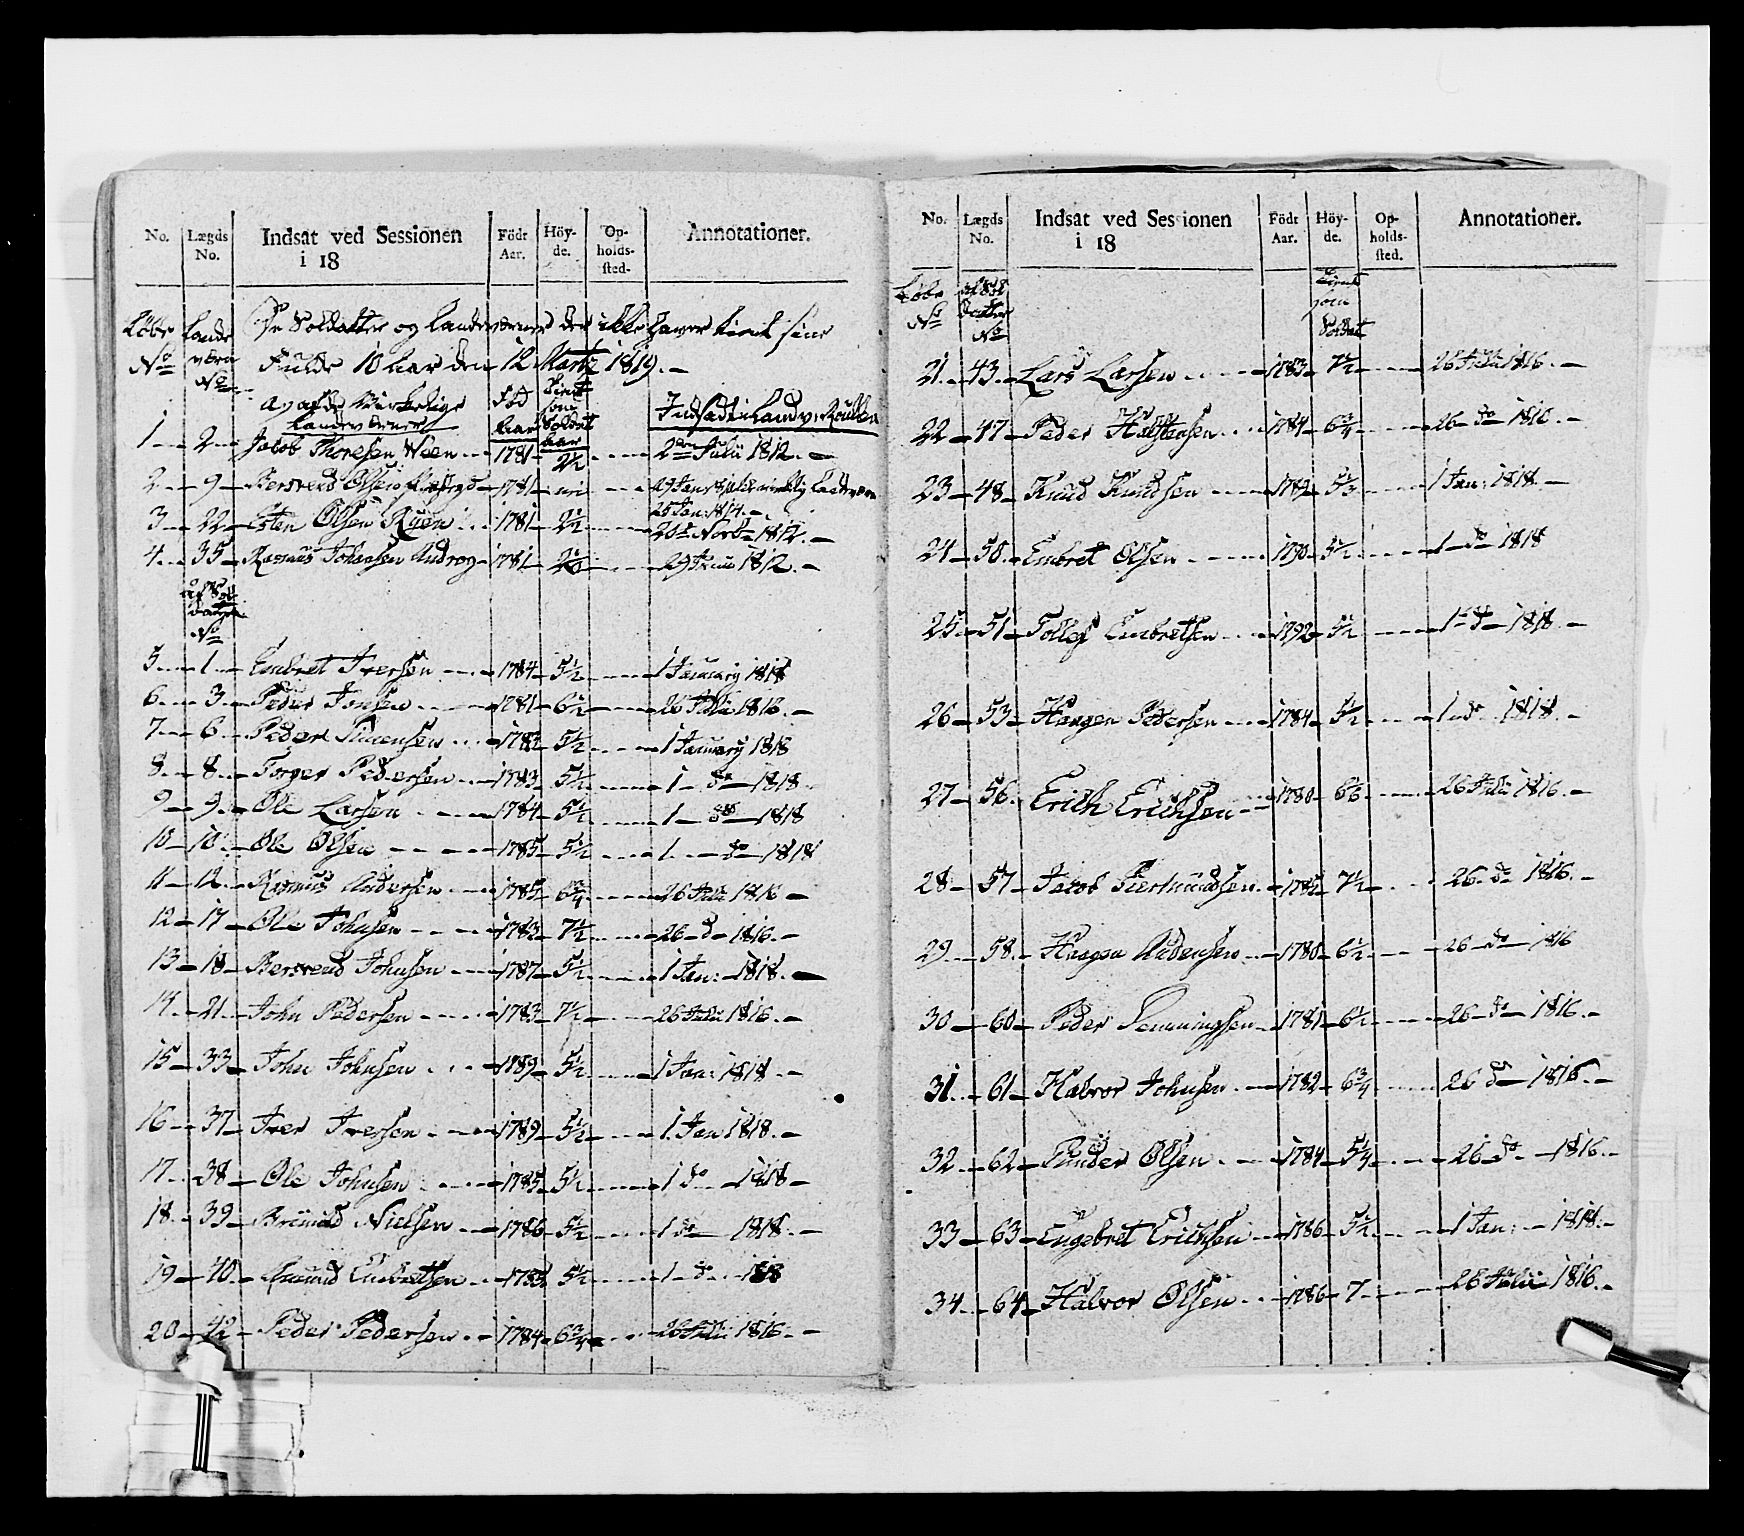 No. Lægds No. Indsat ved Sessionen i 18 Födt Aar. Höy-de. Op-holds-sted. Annotationer.
Löbe No Lande værn No De Soldatter og Landeværner der ikke haver tient sine
Fulde 10 Aar den 12 Martz 1819.
A, af de Virkelige Landeværner Fød Aar Tient som Soldat Aar Indsadt i Landv: Roullen
1 2 Jacob Thoresen Ween 1781 2½ 2den Julii 1812.
2 9 Bersvend Olsen 1781 29 Jan:
25 Jan: 1814.
3 22 Esten Olsen Ruen 1781 2½ 20de Novbr 1812.
4 35 Rasmus Johansen Androg 1781 29 1812.
af Sol datter No
5 1 Embret Iversen 1784 5½ 1 January 1818
6 3 Peder Jonsen 1781 6½ 26 Julii 1816.
7 6 Peder Simensen 1783 5½ 1 January 1818
8 8 Torger Pedersen 1783 5½ 1 do 1818
9 9 Ole Larsen 1784 5½ 1 do 1818
10 10 Ole Olsen 1785 5½ 1 do 1818
11 12 Rasmus Andersen 1785 6¾ 26 Julii 1816
12 17 Ole Johnsen 1783 7½ 26 do 1816.
13 18 Bersvend Johnsen 1787 5½ 1 Jan: 1818.
14 21 John Pedersen 1783 7½ 26 Julii 1816.
15 33 John Johnsen 1789 5½ 1 Jan: 1818.
16 37 Iver Iversen 1789 5½ 1. Jan 1818.
17 38 Ole Johnsen 1785 5½ 1 do 1818
18 39 Brimild Nielsen 1786 5½ 1 do 1818.
19 40 Amund Embretsen 1785 5½ 1 do 1818
20 42 Peder Pedersen 1784 6¾ 26 Julii 1816.
No. Lægds No. Indsat ved Sessionen i 18 Födt Aar. Höy-de. Op-holds-sted. Annotationer.
Löbe No af Sol datter No Tient som Soldat
21 43 Lars Larsen 1783 7½ 26 Julii 1816.
22 47 Peder Halstensen 1784 6¾ 26 do 1816.
23 48 Knud Knudsen 1789 5½ 1 Jan: 1818.
24 50 Embret Olsen 1790 5½ 1 do 1818
25 51 Tollef Embretsen 1792 5½ 1 do 1818.
26 53 Haagen Pedersen 1784 5½ 1 do 1818.
27 56 Erich Erichsen 1780 6½ 26 Julii 1816.
28 57 Jacob Siermundsen 1785 7½ 26 do 1816.
29 58 Haagen Andersen 1780 6½ 26 do 1816
30 60 Peder Semmingsen 1781 6½ 26 do 1816.
31 61 Halvor Johnsen 1782 6¾ 26 do 1816.
32 62 Gunder Olsen 1784 5¼ 26 do 1816.
33 63 Engebret Erichsen 1786 5½ 1 Jan: 1818.
34 64 Halvor Olsen 1786 7 26 Julii 1816.